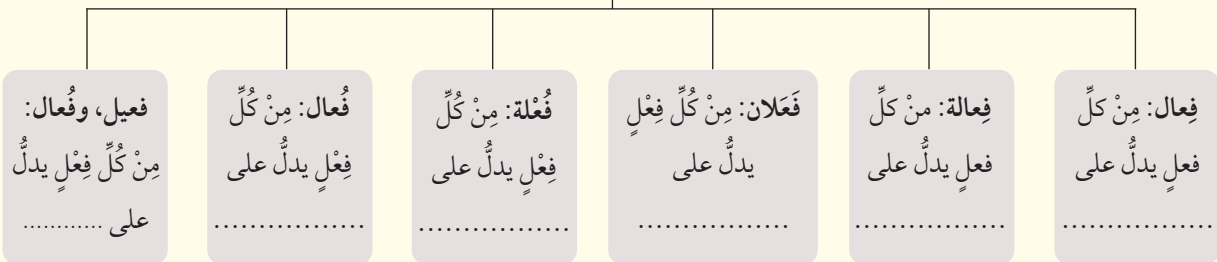 فِعال: مِنْ كلِّ
فعلٍ يدلُّ على
.................
فِعالة: منْ كلِّ
فعلٍ يدلُّ على
.................
فَعَلان: مِنْ كُلِّ فِعْلٍ
يدلُّ على
.................
فُعْلة: مِنْ كُلِّ
فِعْلٍ يدلُّ على
.................
فُعال: مِنْ كُلِّ
فِعْلٍ يدلُّ على
.................
فعيل، وفُعال:
مِنْ كُلِّ فِعْلٍ يدلُّ
على ............